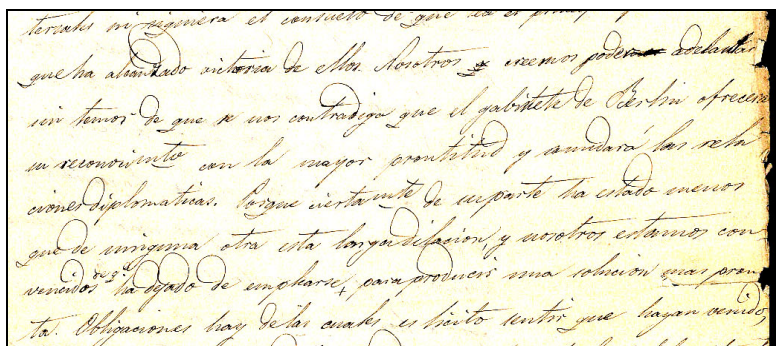 ni siquiera el consuelo de que es el
que ha alcanzado victoria de ellos. Nosotros creemos poder adelantar
sin temor de que se nos contradiga que el gabinete de Berlin ofrecerá
su reconocimiento con la mayor prontitud y reanudará las rela
ciones diplomaticas. Porque ciertamte de su parte ha estado menos
que de ninguna otra esta larga dilacion, y nosotros estamos con
vencidos de q.e ha dejado de emplearse para producir una solucion mas pron
ta. Obligaciones hay de las cuales es licito sentir que hayan venido,